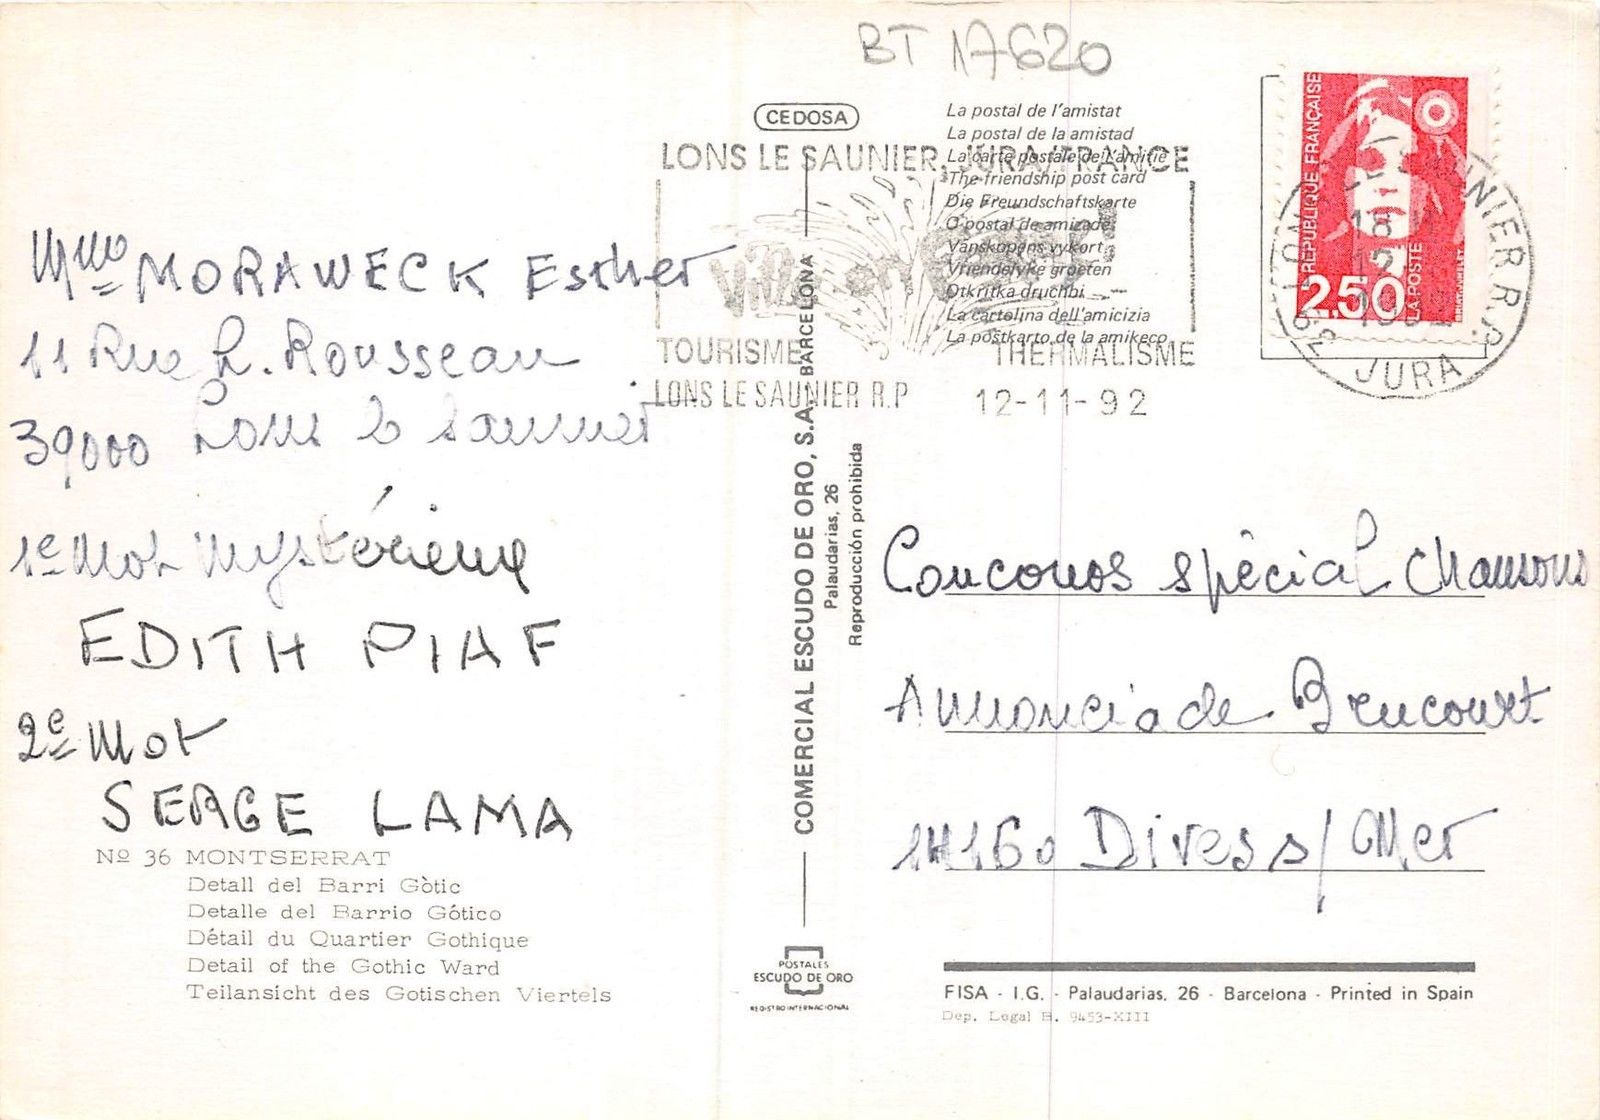 BT 17620
CEDOSA
La postal de l'amistat
La postal de la amistad
La carte postale de l'amitié
The friendship post card
Die Freundschaftskarte
O postal de amizade
Vänskapens vykort
Vriendelyke groeten
Otkritka druchbi
La cartolina dell'amicizia
La postkarto de la amikeco
LONS LE SAUNIER, JURA/FRANCE
TOURISME
THERMALISME
LONS LE SAUNIER R.P
12-11-92
REPUBLIQUE FRANÇAISE
2,50
LA POSTE
SAUNIER R.P.
JURA
Mme MORAWECK Esther
11 Rue R. Rousseau
39000 Lons le Saunier
1e Mot Mystérieux
EDITH PIAF
2e Mot
SERGE LAMA
Nº 36 MONTSERRAT
Detall del Barri Gòtic
Detalle del Barrio Gótico
Détail du Quartier Gothique
Detail of the Gothic Ward
Teilansicht des Gotischen Viertels
COMERCIAL ESCUDO DE ORO, S.A. BARCELONA
Palaudarias, 26
Reproducción prohibida
POSTALES
ESCUDO DE ORO
REGISTRO INTERNACIONAL
spécial Chansons
14160 Dives s/ Mer
FISA - I.G. - Palaudarias, 26 - Barcelona - Printed in Spain
Dep. Legal B. 9453-XIII